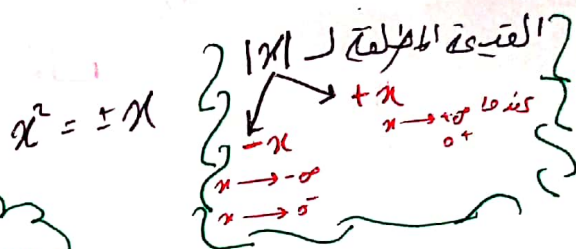 القيمة المطلقة لـ |x|
+x
عندما x → +∞
0+
-x
x → -∞
x → 0⁻
x² = ± x